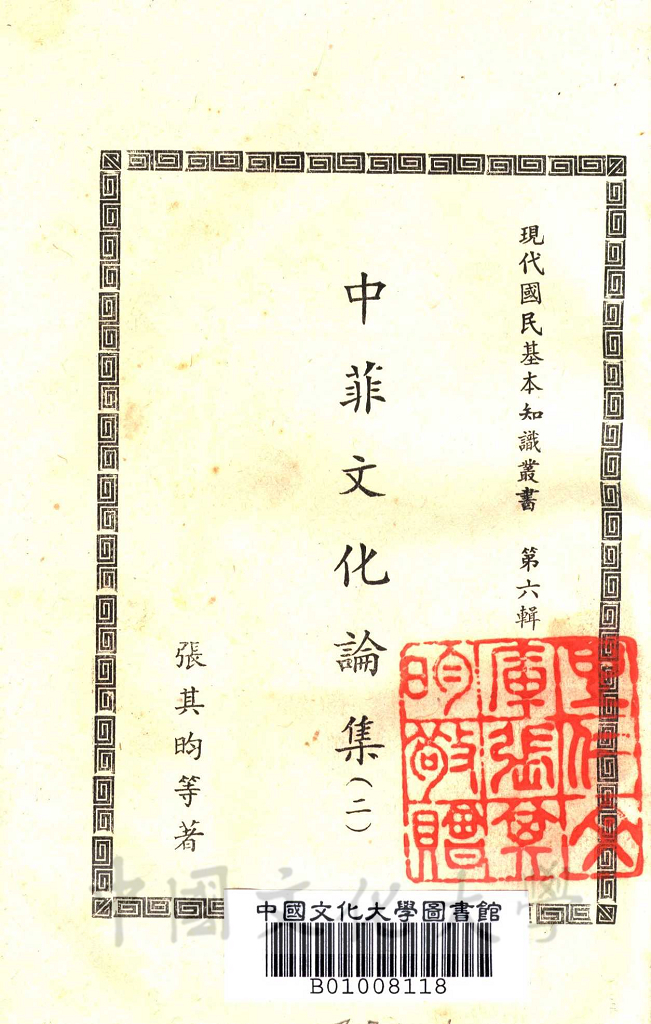 現代國民基本知識叢書 第六輯
中菲文化論集(二)
張其昀等著
庫張其
昀敬贈
中國文化大學
中國文化大學圖書館
B01008118